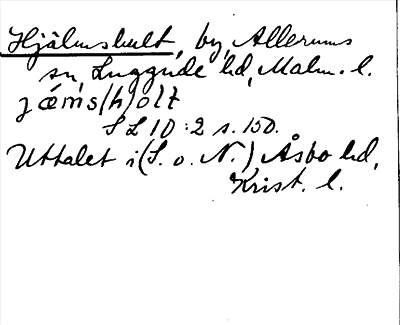 Hjälmshult, by, Allerums
sn, Luggude hd, Malm. l.
jæ̀m̀s(h)olt
SL 10:2 s. 150.
Uttalet i (S. o. N.) Åsbo hd,
Krist. l.